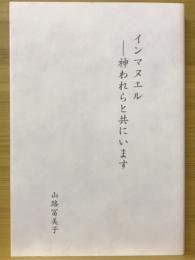 インマヌエル
――神われらと共にいます
山路冨美子